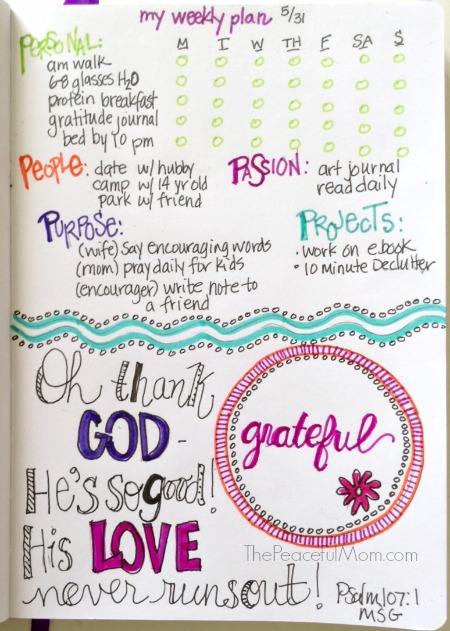 my weekly plan 5/31
PERSONAL: M T W TH F SA S
am walk
6-8 glasses H2O
protein breakfast
gratitude journal
bed by 10 pm
PEOPLE: date w/ hubby
camp w/ 14 yr old
park w/ friend
PASSION: art journal
read daily
PURPOSE:
(wife) say encouraging words
(mom) pray daily for kids
(encourager) write note to
a friend
PROJECTS:
• work on ebook
• 10 minute Declutter
Oh thank
GOD -
He's so good!
His LOVE
never runs out!
grateful
ThePeacefulMom.com
Psalm 107:1
MSG